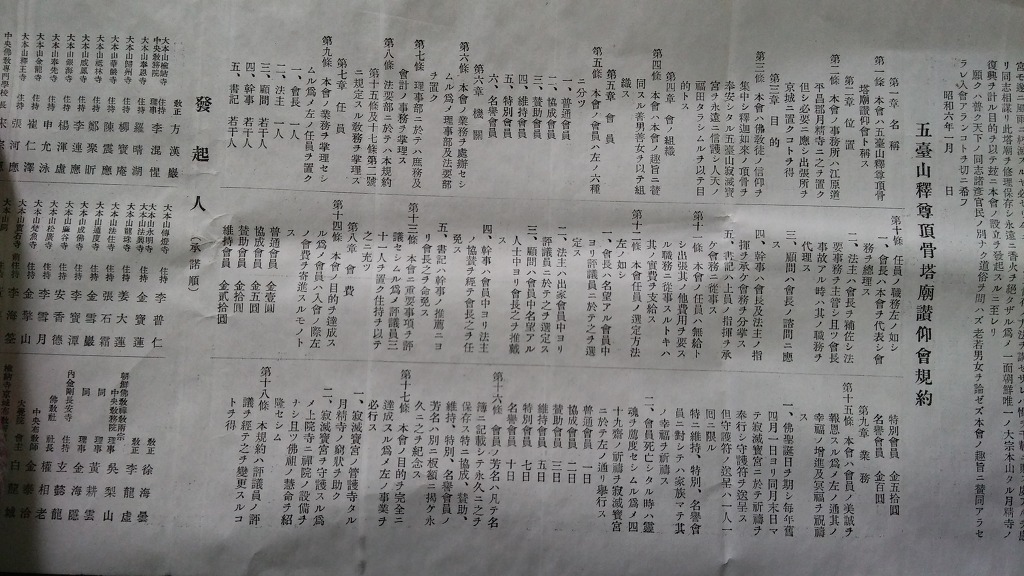 リ同志相謀リ此塔廟ヲ修理保存シ永遠ニ香火ヲ絕タザルガ爲メ一面朝鮮唯一ノ大宗本山タル月精寺ノ
復興ヲ計ルノ目的ヲ以テ玆ニ本會ノ設立ヲ發起スルニ至レリ
願クハ普ク天下ノ同志諸彦官民ノ別ナク道俗ヲ問ハズ老若男女ヲ論ゼズ本會ノ趣旨ニ賛同アラセ
ラレ入會アランコトヲ切ニ希フ
昭和六年一月 日
五臺山釋尊頂骨塔廟讃仰會規約
第一章 名稱
第一條 本會ハ五臺山釋尊頂骨
塔廟讃仰會ト稱ス
第二章 位置
第二條 本會ノ事務所ハ江原道
平昌郡月精寺ニ之ヲ置ク
但シ必要ニ應シ出張所ヲ
京城ニ置クコトヲ得
第三章 目的
第三條 本會ハ佛敎徒ノ信仰ヲ
集中シ釋迦如來ノ頂骨ヲ
奉安シタル五臺山寂滅寶
宮ヲ永遠ニ信護シ人天ノ
福田タラシムルヲ以テ目
的トス
第四章 會ノ組織
第四條 本會ハ本會ノ趣旨ニ賛
同スル善男善女ヲ以テ組
織ス
第五章 會員
第五條 本會ノ會員ハ左ノ六種
ニ分ツ
一、普通會員
二、協成會員
三、賛助會員
四、維持會員
五、特別會員
六、名譽會員
第六章 機關
第六條 本會ノ業務ヲ處辦セシ
ムル爲メ理事部及法要部
ヲ置ク
第七條 理事部ニ於テハ庶務及
會計ノ事務ヲ掌理ス
第八條 法要部ニ於テハ本規約
第十五條及十七條第二號
ニ規定スル敎務ヲ掌理ス
第七章 任員
第九條 本會ノ業務ヲ掌理セシ
ムル爲メ左ノ任員ヲ置ク
一、會長 一人
二、法主 一人
三、顧問 若干人
四、幹事 若干人
五、書記 若干人
第十條 任員ノ職務左ノ如シ
一、會長ハ本會ヲ代表シ會
務ヲ總理ス
二、法主ハ會長ヲ補佐シ法
要事務ヲ主管シ且ツ會長
事故アル時ハ其ノ職務ヲ
代理ス
三、顧問ハ會長ノ諮問ニ應
ス
四、幹事ハ會長及法主ノ指
揮ヲ承ケ會務ヲ分掌ス
五、書記ハ上員ノ指揮ヲ承
ケ會務ニ從事ス
第十一條 本會ノ任員ハ無給ト
シ出張其ノ他費用ヲ要ス
ル職務ニ從事スルトキハ
其ノ實費ヲ支給ス
第十二條 本會任員ノ選定方法
左ノ如シ
一、會長ハ名望アル會員中
ヨリ評議員ニ於テ之ヲ選
定ス
二、法主ハ出家會員中ヨリ
評議員ニ於テ之ヲ選定ス
三、顧問ハ會員中名望アル
人士中ヨリ會長之ヲ推戴
ス
四、幹事ハ會員中ヨリ法主
ノ協賛ヲ經テ會長之ヲ任
免ス
五、書記ハ幹事ノ推薦ニヨ
リ會長之ヲ命免ス
第十三條 本會ノ重要事項ヲ評
議セシムル爲メ評議員三
十一人ヲ置キ住持ヲ以テ
之ニ充ツ
第八章 會費
第十四條 本會ノ目的ヲ達成ス
ル爲メ會員ハ入會ノ際左
ノ會費ヲ寄進スルモノト
ス
普通會員 金壹圓
協成會員 金五圓
賛助會員 金拾圓
維持會員 金貳拾圓
特別會員 金五十圓
名譽會員 金百圓
第九章 業務
第十五條 本會ハ會員ノ美誠ヲ
報恩スル爲メ左ノ通其ノ
幸福ノ增進及冥福ヲ祝禱
ス
一、佛聖誕日ヲ期シ每年舊
四月一日ヨリ同月末日マ
テ寂滅寶宮ニ於テ祈禱ヲ
奉行シ守護符ヲ送呈ス
但シ守護符ノ送呈ハ一人一
回ニ限ル
特ニ維持、特別、名譽會
員ニ對シテハ家族マデ其
ノ幸福ヲ祈禱ス
二、會員死亡シタル時ハ靈
魂ヲ薦度セシムル爲メ四
十九齋ノ祈禱ヲ寂滅寶宮
ニ於テ左ノ通リ擧行ス
普通會員 一日
協成會員 二日
賛助會員 三日
維持會員 五日
特別會員 七日
名譽會員 十日
第十六條 會員ノ芳名ハ凡テ名
簿ニ記載シテ永久ニ之ヲ
保存ス特ニ協成、賛助、
維持、特別、名譽會員ノ
芳名ハ別ニ板額ニ揭ケ永
久ニ之ヲ紀念ス
第十七條 本會ノ目的ヲ完全ニ
達成スル爲メ左ノ事業ヲ
必行ス
一、寂滅寶宮ノ管護寺タル
月精寺ノ窮狀ヲ助ク
二、寂滅寶宮ヲ守護スル爲
メ上院寺ニ禪院ノ設備ヲ
ナシ且ツ佛祖ノ慧命ヲ紹
隆セシム
第十八條 本規約ハ評議員ノ評
議ヲ經テ之ヲ變更スルコ
トヲ得
發起人(承諾順)
敎正 方漢巖
中央敎務院理事 李混惺
大本山奉恩寺住持 羅晴湖
大本山貝葉寺住持
大本山傳燈寺住持 李普仁
金寶蓮
姜大蓮
張石霜
金雪巖
李寶潭
安香德
李雪月
金擎山
敎正 徐海曇
敎正 李龍虛
吳梨山
黃耕雲
金海隱
玄懿龍
權相老
金泰洽
白龍城